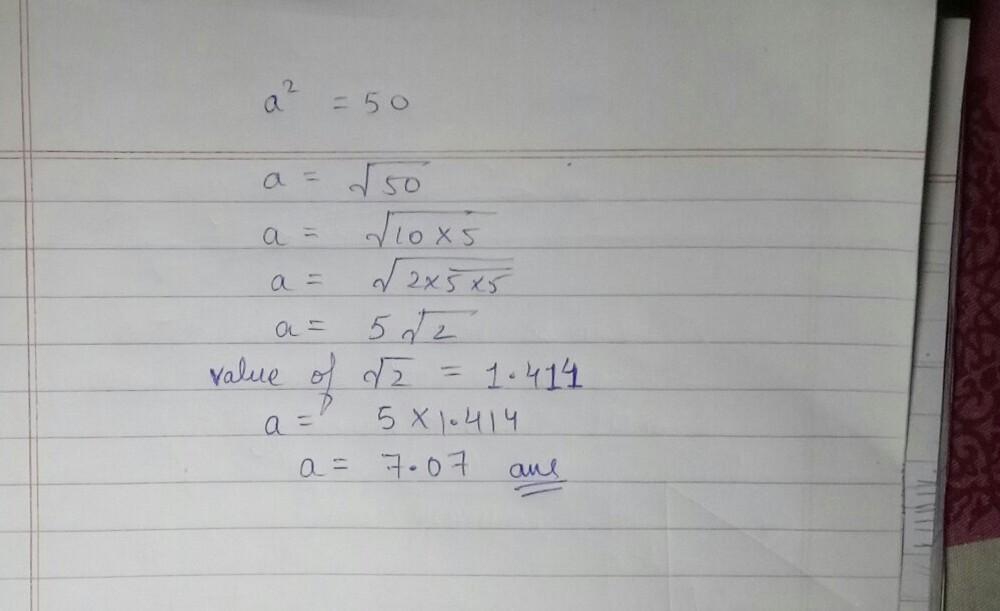 a² = 50
a = √50
a = √10×5
a = √2×5×5
a = 5√2
value of √2 = 1.414
a = 5×1.414
a = 7.07 ans